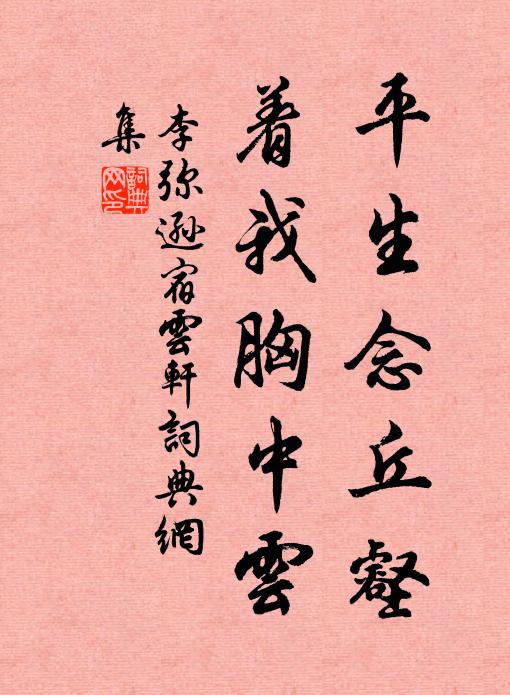 平生念丘壑
着我胸中雲
李弥遜宿雲軒詞典網
集
詞典網印